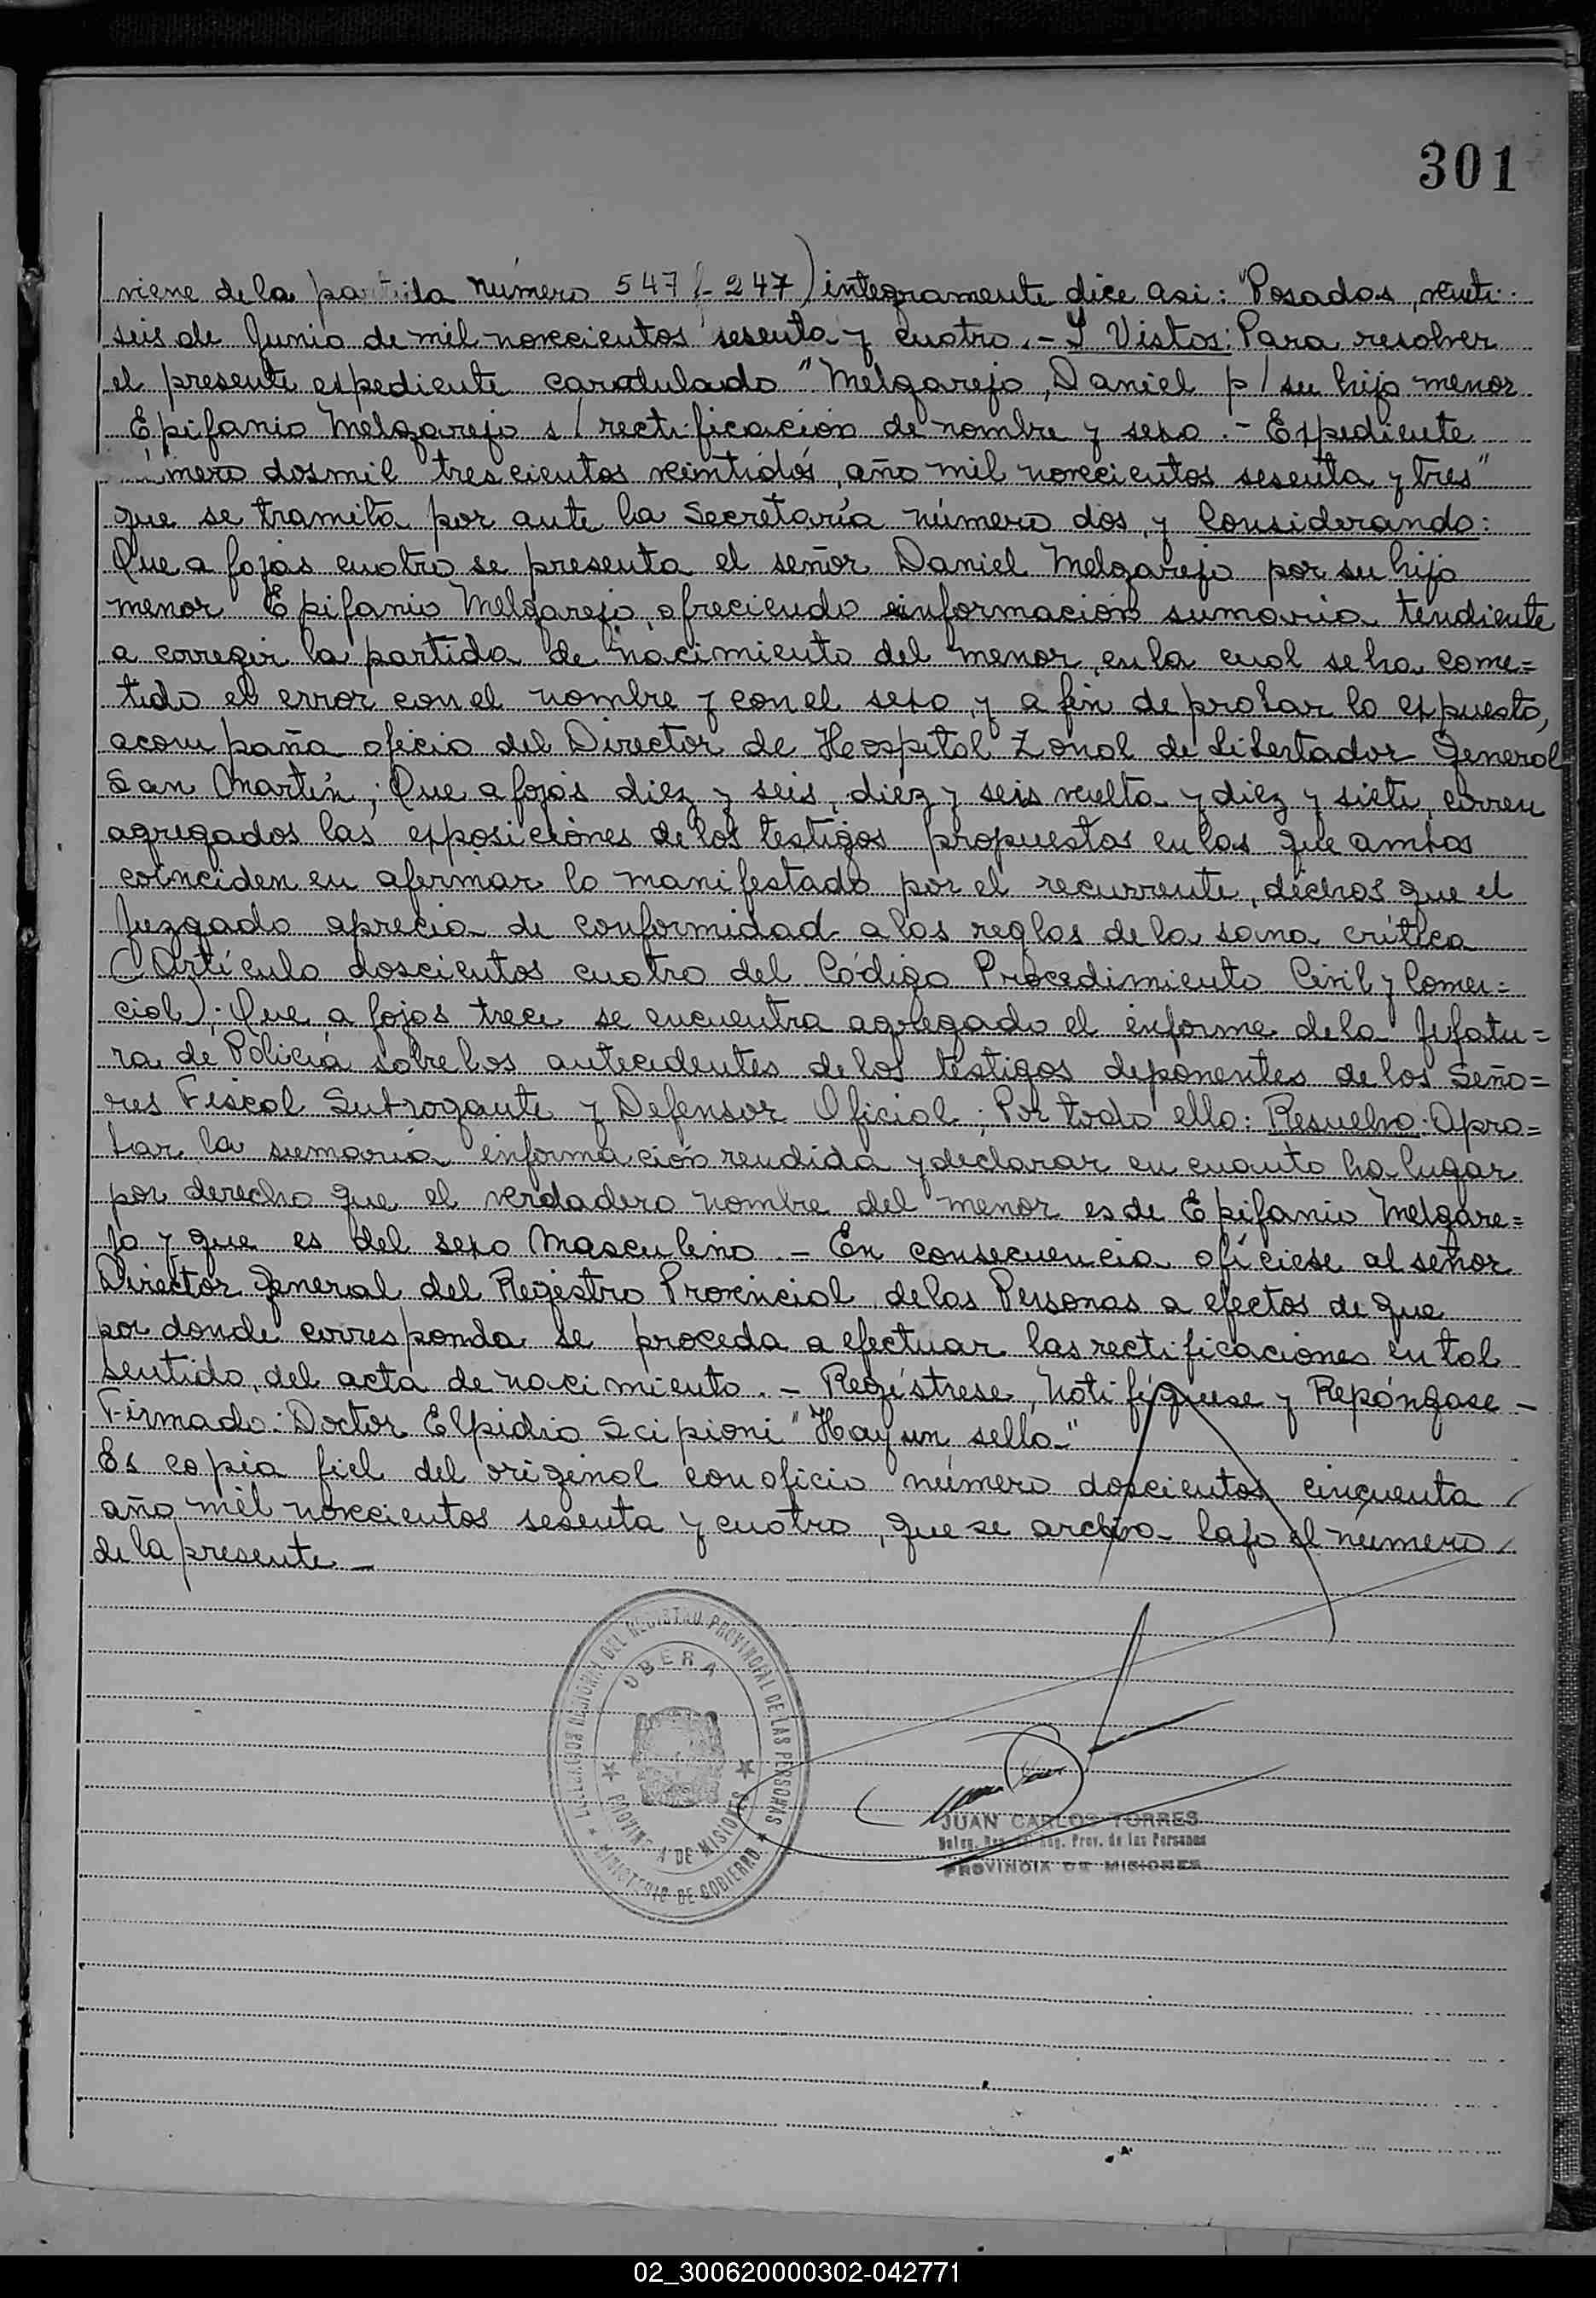 301
viene de la partida número 547 f- 247) integramente dice asi: "Posadas, veinti-
seis de Junio de mil novecientos sesenta y cuatro.- Y Vistos: Para resolver
el presente expediente caratulado "Melgarejo, Daniel p/ su hijo menor
Epifanio Melgarejo s/ rectificación de nombre y sexo.- Expediente
número dos mil trescientos veintidós, año mil novecientos sesenta y tres"
que se tramita por ante la Secretaría número dos, y Considerando:
Que a fojas cuatro se presenta el señor Daniel Melgarejo por su hijo
menor Epifanio Melgarejo, ofreciendo información sumaria tendiente
a corregir la partida de nacimiento del menor, en la cual se ha come=
tido el error con el nombre y con el sexo, y a fin de probar lo expuesto,
acompaña oficio del Director de Hospital Zonal de Libertador General
San Martín; Que a fojas diez y seis, diez y seis vuelta y diez y siete, corren
agregados las exposiciones de los testigos propuestos en las que ambos
coinciden en afirmar lo manifestado por el recurrente, dichos que el
Juzgado aprecia de conformidad a las reglas de la sana crítica
(Artículo doscientos cuatro del Código Procedimiento Civil y Comer=
cial); Que a fojas trece se encuentra agregado el informe de la Jefatu=
ra de Policía sobre los antecedentes de los testigos deponentes de los Seño=
res Fiscal Subrogante y Defensor Oficial; Por todo ello: Resuelvo: Apro=
bar la sumaria información rendida y declarar en cuanto ha lugar
por derecho que el verdadero nombre del menor es de Epifanio Melgare=
jo y que es del sexo Masculino.- En consecuencia ofíciese al señor
Director General del Registro Provincial de las Personas a efectos de que
por donde corresponda se proceda a efectuar las rectificaciones en tal
sentido, del acta de nacimiento.- Regístrese, Notifíquese y Repóngase-
Firmado: Doctor Elpidio Scipioni "Hay un sello-"
Es copia fiel del original con oficio número doscientos cincuenta
año mil novecientos sesenta y cuatro, que se archiva bajo el número
de la presente-
DEL REGISTRO PROVINCIAL DE LAS PERSONAS
OBERA
PROVINCIA DE MISIONES
MINISTERIO DE GOBIERNO
JUAN CARLOS TORRES
Prov. de las Personas
PROVINCIA DE MISIONES
02_300620000302-042771